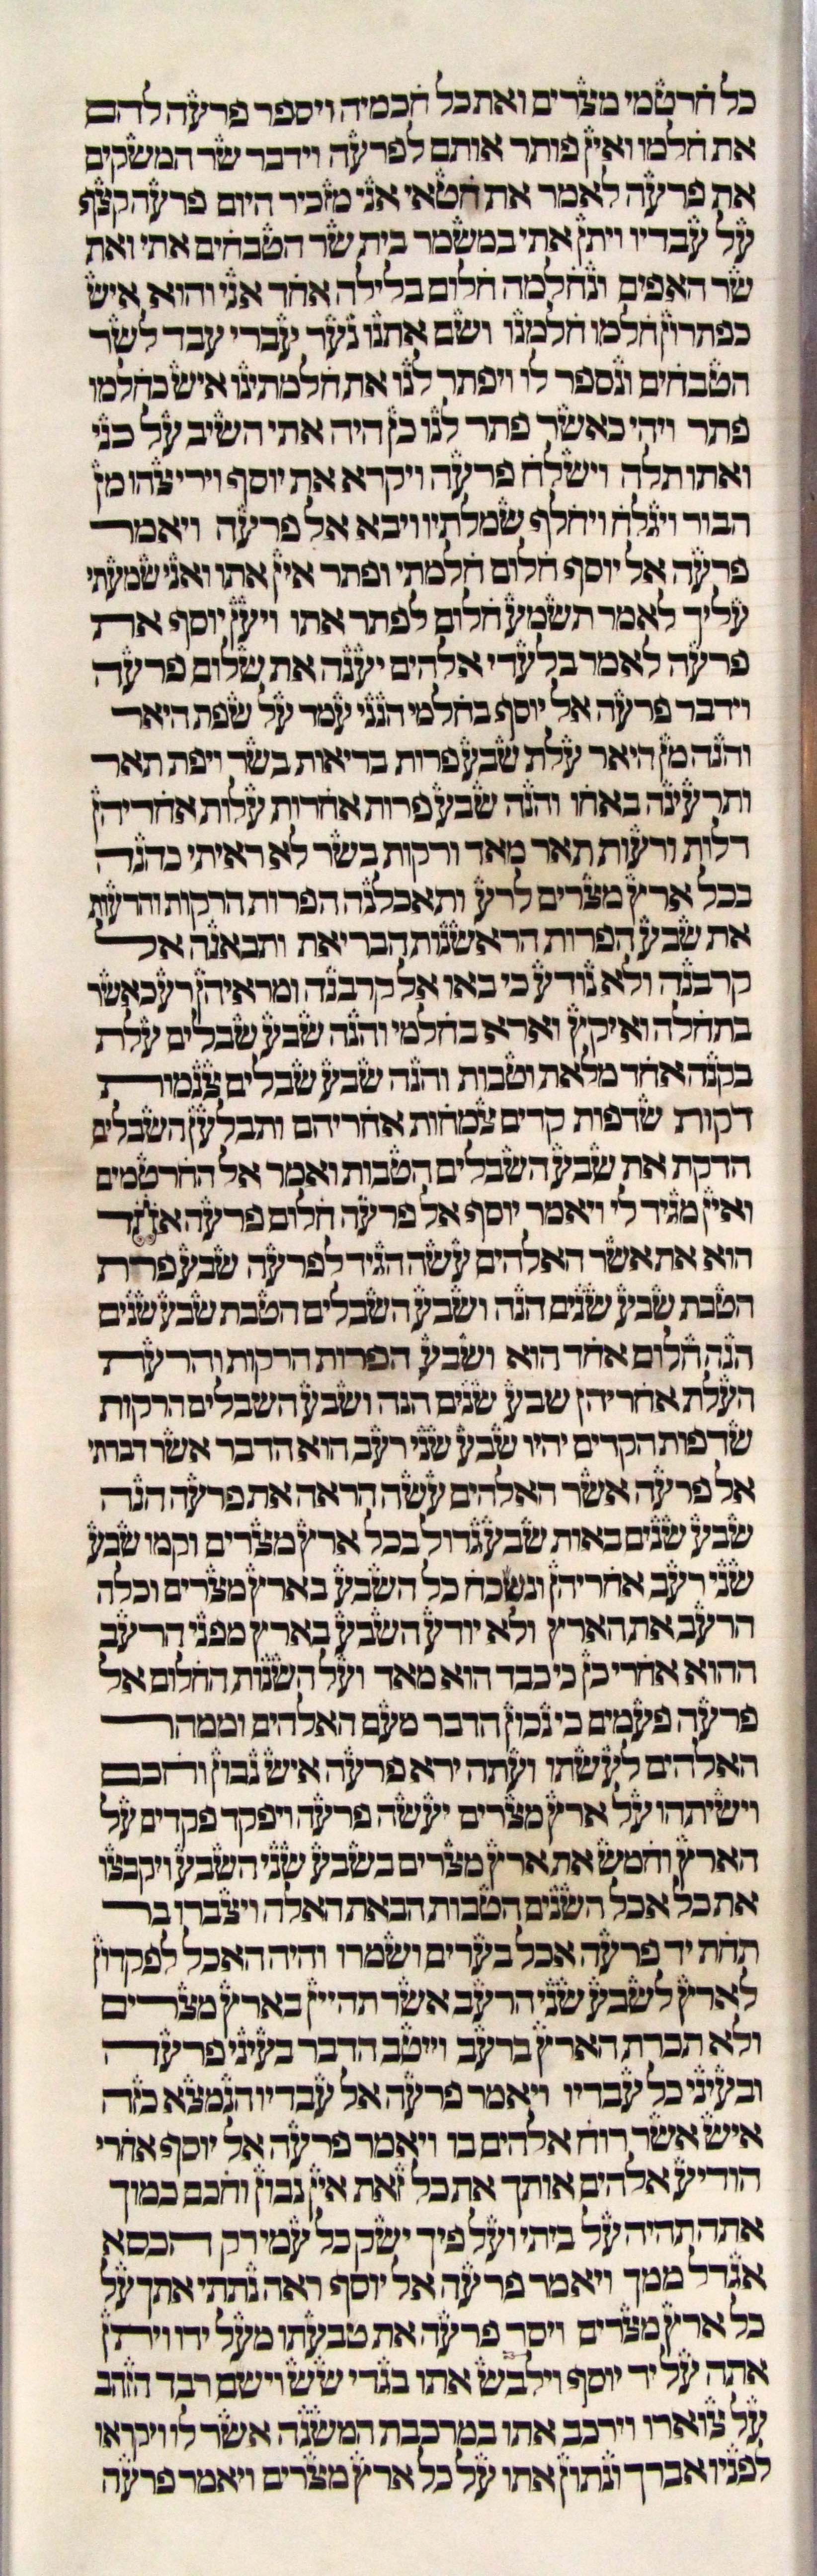 כל חרטמי מצרים ואת כל חכמיה ויספר פרעה להם
את חלמו ואין פותר אותם לפרעה וידבר שר המשקים
את פרעה לאמר את חטאי אני מזכיר היום פרעה קצף
על עבדיו ויתן אתי במשמר בית שר הטבחים אתי ואת
שר האפים ונחלמה חלום בלילה אחד אני והוא איש
כפתרון חלמו חלמנו ושם אתנו נער עברי עבד לשר
הטבחים ונספר לו ויפתר לנו את חלמתינו איש כחלמו
פתר ויהי כאשר פתר לנו כן היה אתי השיב על כני
ואתו תלה וישלח פרעה ויקרא את יוסף ויריצהו מן
הבור ויגלח ויחלף שמלתיו ויבא אל פרעה ויאמר
פרעה אל יוסף חלום חלמתי ופתר אין אתו ואני שמעתי
עליך לאמר תשמע חלום לפתר אתו ויען יוסף את
פרעה לאמר בלעדי אלהים יענה את שלום פרעה
וידבר פרעה אל יוסף בחלמי הנני עמד על שפת היאר
והנה מן היאר עלת שבע פרות בריאות בשר ויפת תאר
ותרעינה באחו והנה שבע פרות אחרות עלות אחריהן
דלות ורעות תאר מאד ורקות בשר לא ראיתי כהנה
בכל ארץ מצרים לרע ותאכלנה הפרות הרקות והרעות
את שבע הפרות הראשנות הבריאת ותבאנה אל
קרבנה ולא נודע כי באו אל קרבנה ומראיהן רע כאשר
בתחלה ואיקץ וארא בחלמי והנה שבע שבלים עלת
בקנה אחד מלאת וטבות והנה שבע שבלים צנמות
דקות שדפות קדים צמחות אחריהם ותבלען השבלים
הדקת את שבע השבלים הטבות ואמר אל החרטמים
ואין מגיד לי ויאמר יוסף אל פרעה חלום פרעה אחד
הוא את אשר האלהים עשה הגיד לפרעה שבע פרת
הטבת שבע שנים הנה ושבע השבלים הטבת שבע שנים
הנה חלום אחד הוא ושבע הפרות הרקות והרעת
העלת אחריהן שבע שנים הנה ושבע השבלים הרקות
שדפות הקדים יהיו שבע שני רעב הוא הדבר אשר דברתי
אל פרעה אשר האלהים עשה הראה את פרעה הנה
שבע שנים באות שבע גדול בכל ארץ מצרים וקמו שבע
שני רעב אחריהן ונשכח כל השבע בארץ מצרים וכלה
הרעב את הארץ ולא יודע השבע בארץ מפני הרעב
ההוא אחרי כן כי כבד הוא מאד ועל השנות החלום אל
פרעה פעמים כי נכון הדבר מעם האלהים וממהר
האלהים לעשתו ועתה ירא פרעה איש נבון וחכם
וישיתהו על ארץ מצרים יעשה פרעה ויפקד פקדים על
הארץ וחמש את ארץ מצרים בשבע שני השבע ויקבצו
את כל אכל השנים הטבות הבאת האלה ויצברו בר
תחת יד פרעה אכל בערים ושמרו והיה האכל לפקדון
לארץ לשבע שני הרעב אשר תהיין בארץ מצרים
ולא תכרת הארץ ברעב וייטב הדבר בעיני פרעה
ובעיני כל עבדיו ויאמר פרעה אל עבדיו הנמצא כזה
איש אשר רוח אלהים בו ויאמר פרעה אל יוסף אחרי
הודיע אלהים אותך את כל זאת אין נבון וחכם כמוך
אתה תהיה על ביתי ועל פיך ישק כל עמי רק הכסא
אגדל ממך ויאמר פרעה אל יוסף ראה נתתי אתך על
כל ארץ מצרים ויסר פרעה את טבעתו מעל ידו ויתן
אתה על יד יוסף וילבש אתו בגדי שש וישם רבד הזהב
על צוארו וירכב אתו במרכבת המשנה אשר לו ויקראו
לפניו אברך ונתון אתו על כל ארץ מצרים ויאמר פרעה